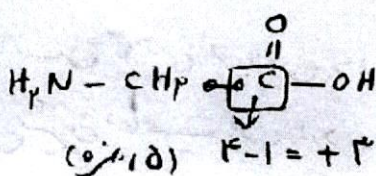 O
H₂N – CH₂ – C – OH
(۵ نمره) ۴-۱ = +۳